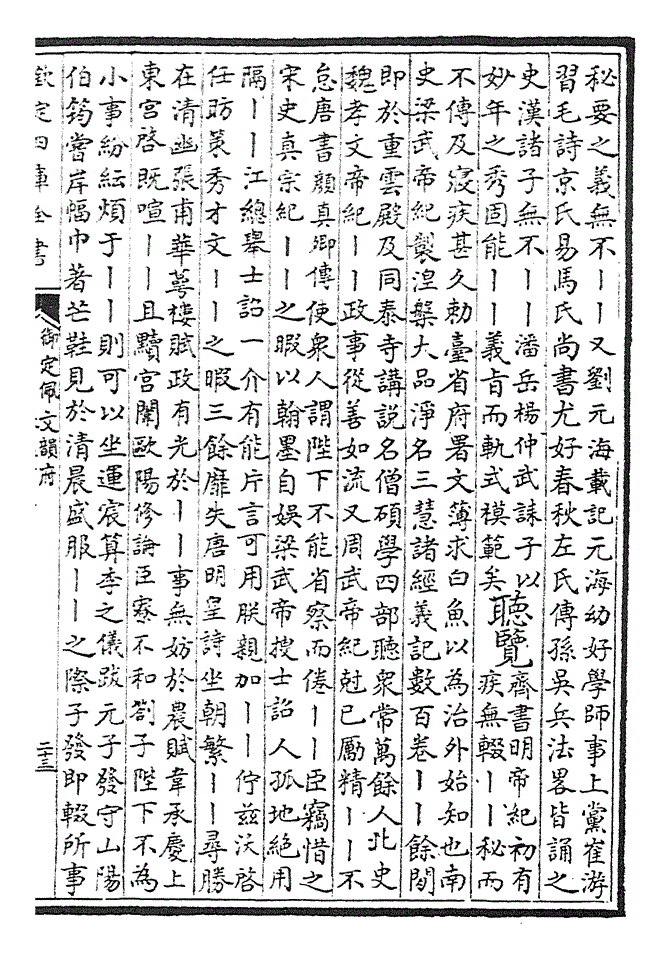 秘要之義無不丨丨又劉元海載記元海幼好學師事上黨崔游
習毛詩京氏易馬氏尚書尤好春秋左氏傳孫吳兵法畧皆誦之
史漢諸子無不丨丨潘岳楊仲武誄子以
妙年之秀固能丨丨義㫖而軌式模範矣
聽覽
齊書明帝紀初有
疾無輟丨丨秘而
不傳及寝疾甚久勑臺省府署文簿求白魚以為治外始知也南
史梁武帝紀製涅槃大品淨名三慧諸經義記數百卷丨丨餘閒
即於重雲殿及同泰寺講說名僧碩學四部聽衆常萬餘人北史
魏孝文帝紀丨丨政事從善如流又周武帝紀尅已勵精丨丨不
怠唐書顔真卿傳使衆人謂陛下不能省察而倦丨丨臣竊惜之
宋史真宗紀丨丨之暇以翰墨自娛梁武帝搜士詔人孤地絶用
隔丨丨江總舉士詔一介有能片言可用朕親加丨丨佇兹沃啓
任昉䇿秀才文丨丨之暇三餘靡失唐明皇詩坐朝繁丨丨尋勝
在清幽張甫華萼樓賦政有光於丨丨事無妨於農賦韋承慶上
東宫啓既喧丨丨且黷宫闈歐陽修論臣寮不和劄子陛下不為
小事紛紜煩于丨丨則可以坐運宸算李之儀跋元子發守山陽
伯筠嘗岸幅巾著芒鞋見於清晨盛服丨丨之際子發即輟所事
欽定四庫全書
御定佩文韻府
二十三